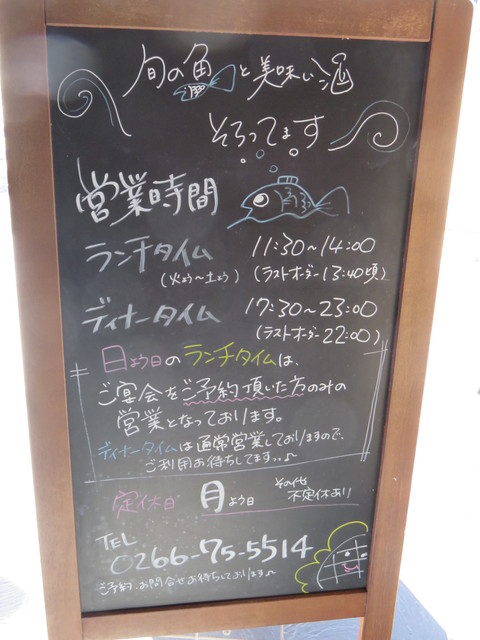 旬の魚と美味い酒
そろってます
営業時間
ランチタイム 11:30~14:00
(火よう~土よう) (ラストオーダー13:40頃)
ディナータイム 17:30~23:00
(ラストオーダー22:00)
日よう日のランチタイムは、
ご宴会をご予約頂いた方のみの
営業となっております。
ディナータイムは通常営業しておりますので、
ご利用お待ちしてます..♪
定休日 月よう日 その他
不定休あり
TEL
0266-75-5514
ご予約、お問合せお待ちしております♪